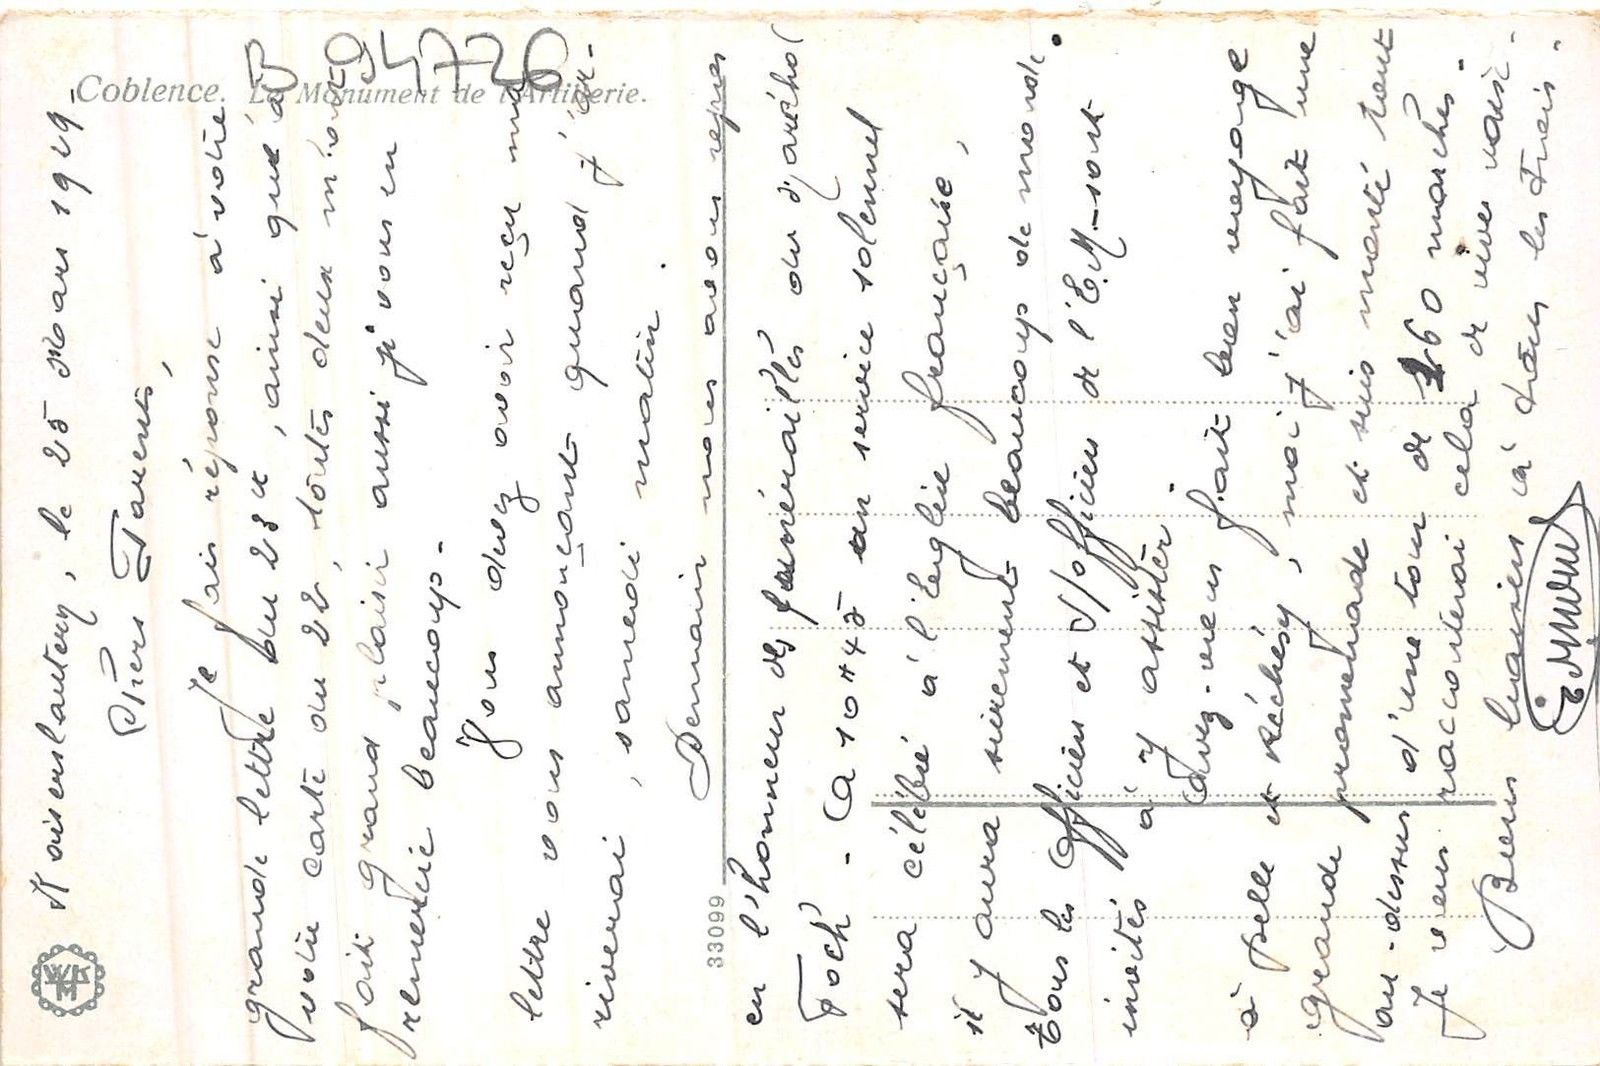 Coblence. Le Monument de l'Artillerie.
94726
WK M
33099
Kaiserslautern, le 25 Mars 1929-
Chers Parents,
Je fais réponse à votre
grande lettre du 23 ct, ainsi qu'à
votre carte du 22, toutes deux m'ont
fait grand plaisir aussi j'vous en
remercie beaucoup-
Vous devez avoir reçu ma
lettre vous annonçant quand j'ar-
riverai, samedi matin.
Demain nous avons repos
en l'honneur des funérailles du Maréchal
Foch - A 10H45 un service solennel
sera célébré à l'Eglise française,
il y aura sûrement beaucoup de monde.
tous les Officiers et S/officiers de l'E.M-sont
invités à y assister.
Avez-vous fait bon voyage
à Selle et , moi j'ai fait une
grande promenade et suis monté tout
au-dessus d'une tour de 160 marches.
Je vous raconterai cela de vive voix-
Bons baisers à tous les trois-